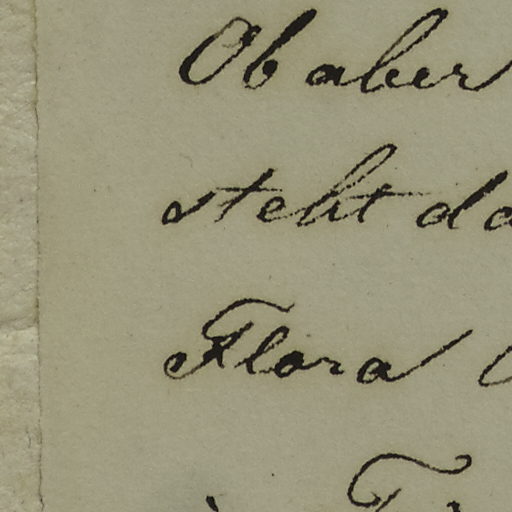 Ob aber
steht da
Flora